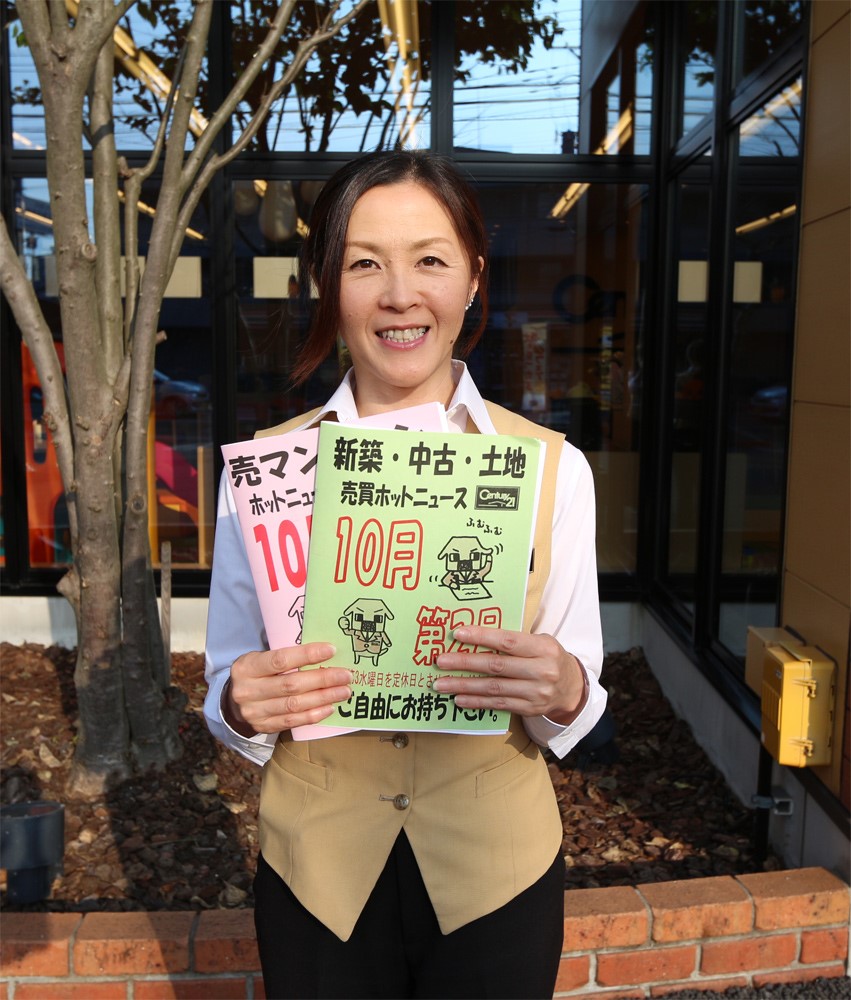 売マン
ホットニュ
10
新築・中古・土地
売買ホットニュース
Century 21
ふむふむ
10月
第2
3水曜日を定休日と
ご自由にお持ち下さい。